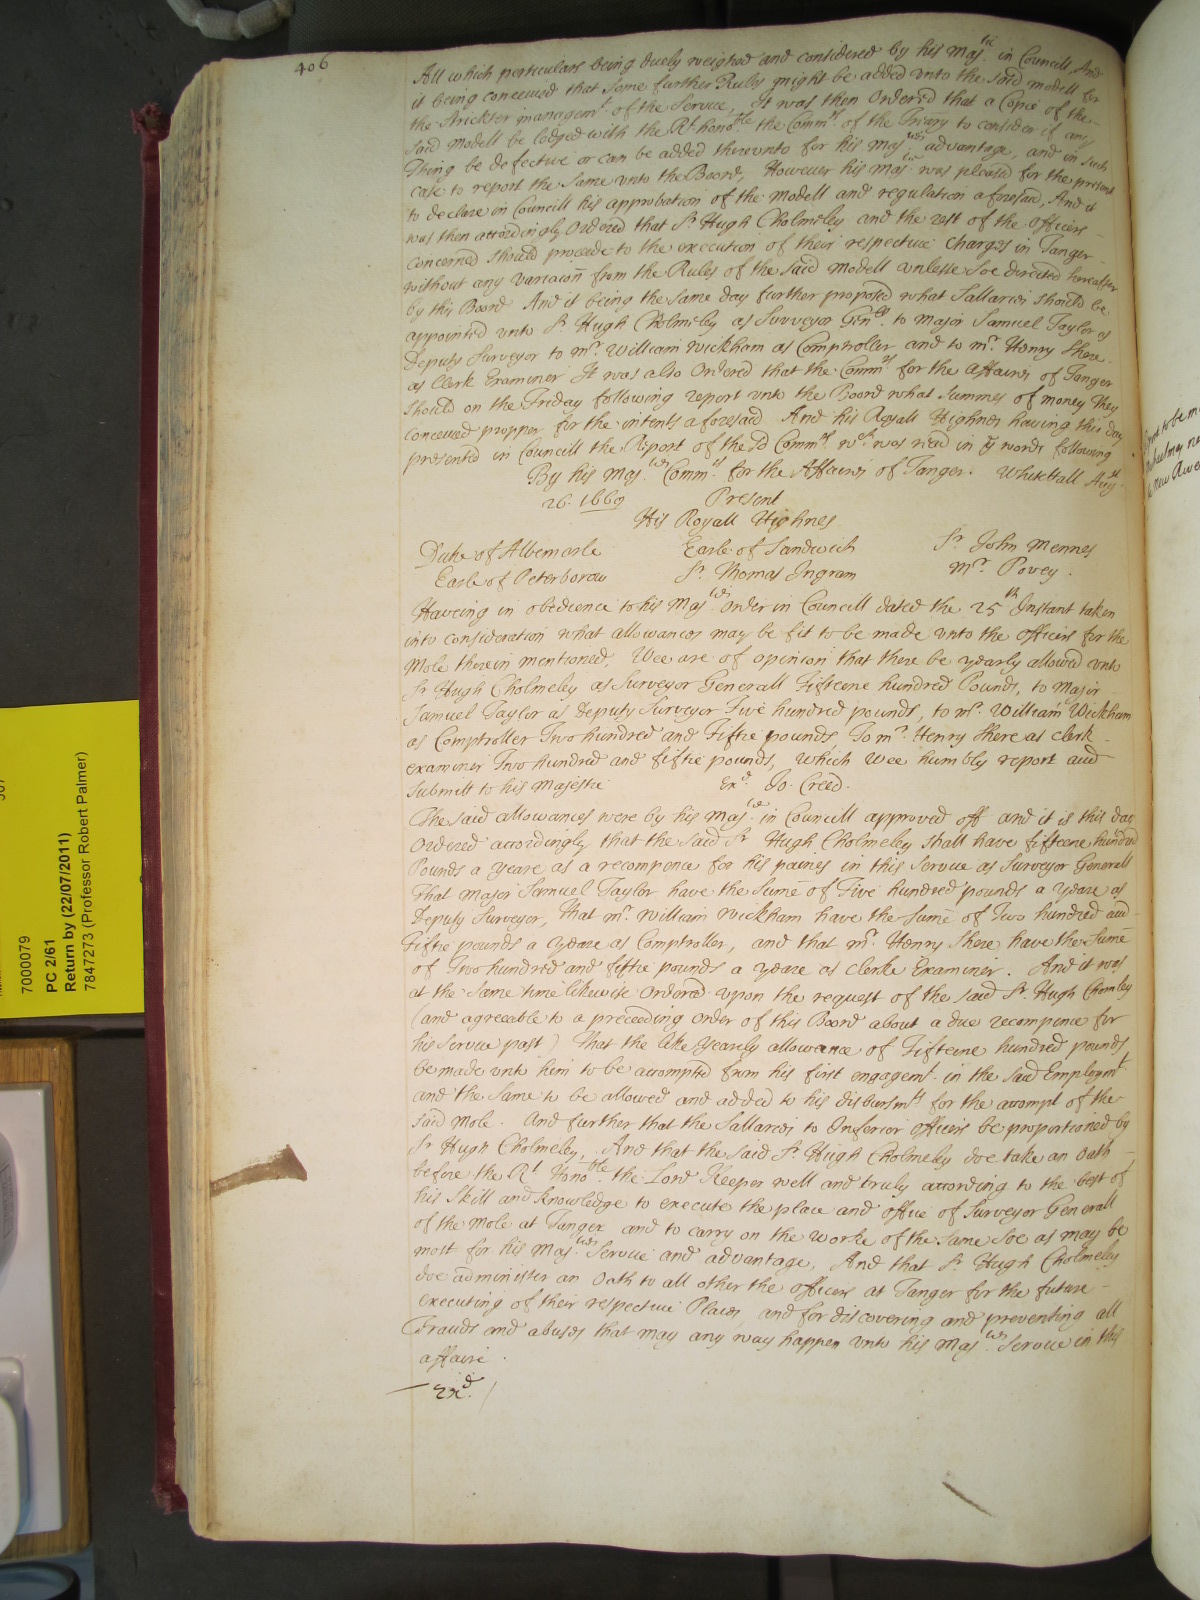 406
All which particulars being duely weighed and considered by his Maj.tie in Councill, And
it being conceived that some further Rules might be added vnto the said modell for
the stricter managem.t of the Service, It was then Ordered that a Copie of the
said Modell be lodged with the R.t hono.ble the Comm.rs of the Treãry to consider if any
Thing be defective or can be added therevnto for his Maj.ties advantage, and in such
case to report the same vnto the Board, However his Maj.tie was pleased for the present
to declare in Councill his approbation of the Modell and regulation aforesaid, And it
was then accordingly Ordered that S.r Hugh Cholmeley and the rest of the Officers
concerned should proceede to the execution of their respective Charges in Tanger
without any variacoñ from the Rules of the said Modell vnlesse soe directed hereafter
by this Board And it being the same day further proposed what Sallaries should be
appointed vnto S.r Hugh Cholmeley as Surveyor Gen.ll to Major Samuel Taylor as
Deputy Surveyor to m.r William Wickham as Comptroller and to m.r Henry Shere
as Clerk Examiner It was also Ordered that the Comm.rs for the Affaires of Tanger
should on the Friday following report vnto the Board what Summes of money they
conceived propper for the intents aforesaid And his Royall Highnes having this day
presented in Councill the Report of the s.d Comm.rs w.ch was read in y.e words following
By his Maj.ties Comm.rs for the Affaires of Tanger. WhiteHall Aug.st
26. 1669 Present
His Royall Highnes
Duke of Albemarle Earle of Sandwich S.r John Mennes
Earle of Peterborow S.r Thomas Ingram m.r Povey.
Haveing in obedience to his Maj.ties Order in Councill dated the 25.th Instant taken
into consideration what allowances may be fit to be made vnto the officers for the
Mole therein mentioned, Wee are of opinion that there be yearly allowed vnto
S.r Hugh Cholmeley as Surveyor Generall Fifteene hundred Pounds, to Major
Samuel Taylor as Deputy Surveyor Five hundred pounds, to m.r William Wickham
as Comptroller Two hundred and Fiftie pounds To m.r Henry Shere as clerk
examiner Two hundred and fiftie pounds, Which Wee humbly report and
submitt to his Majestie Ex.d Jo. Creed.
The said allowances were by his Maj.tie in Councill approved off and it is this day
Ordered accordingly that the said S.r Hugh Cholmeley shall have fifteene hundred
Pounds a yeare as a recompence for his paines in this Service as Surveyor Generall
That Major Samuel Taylor have the Sume of Five hundred pounds a yeare as
Deputy Surveyor, That m.r William Wickham have the sume of Two hundred and
Fiftie pounds a yeare as Comptroller, and that m.r Henry Shere have the Sume
of Two hundred and fiftie pounds a yeare as clerke Examiner. And it was
at the same time likewise Ordered vpon the request of the said S.r Hugh Chomley
(and agreeable to a preceeding Order of this Board about a due recompence for
his Service past) That the like yearly allowance of Fifteene hundred pounds
be made vnto him to be accompted from his first engagem.t in the said Employm.t
and the same to be allowed and added to his disbursm.ts for the accompt of the
said Mole. And further that the Sallaries to Inferior officers be proportioned by
S.r Hugh Cholmeley, And that the said S.r Hugh Cholmeley doe take an Oath
before the R.t Hono.ble the Lord Keeper well and truly according to the best of
his Skill and Knowledge to execute the place and office of Surveyor Generall
of the Mole at Tanger and to carry on the Worke of the same soe as may be
most for his Maj.ties Service and advantage, And that S.r Hugh Cholmeley
doe administer an Oath to all other the officers at Tanger for the future
executing of their respective Places, and for discovering and preventing all
Frauds and abuses that may any way happen vnto his Maj.ties Service in this
affaire.
Ex.d
7000079
PC 2/61
Return by (22/07/2011)
7847273 (Professor Robert Palmer)